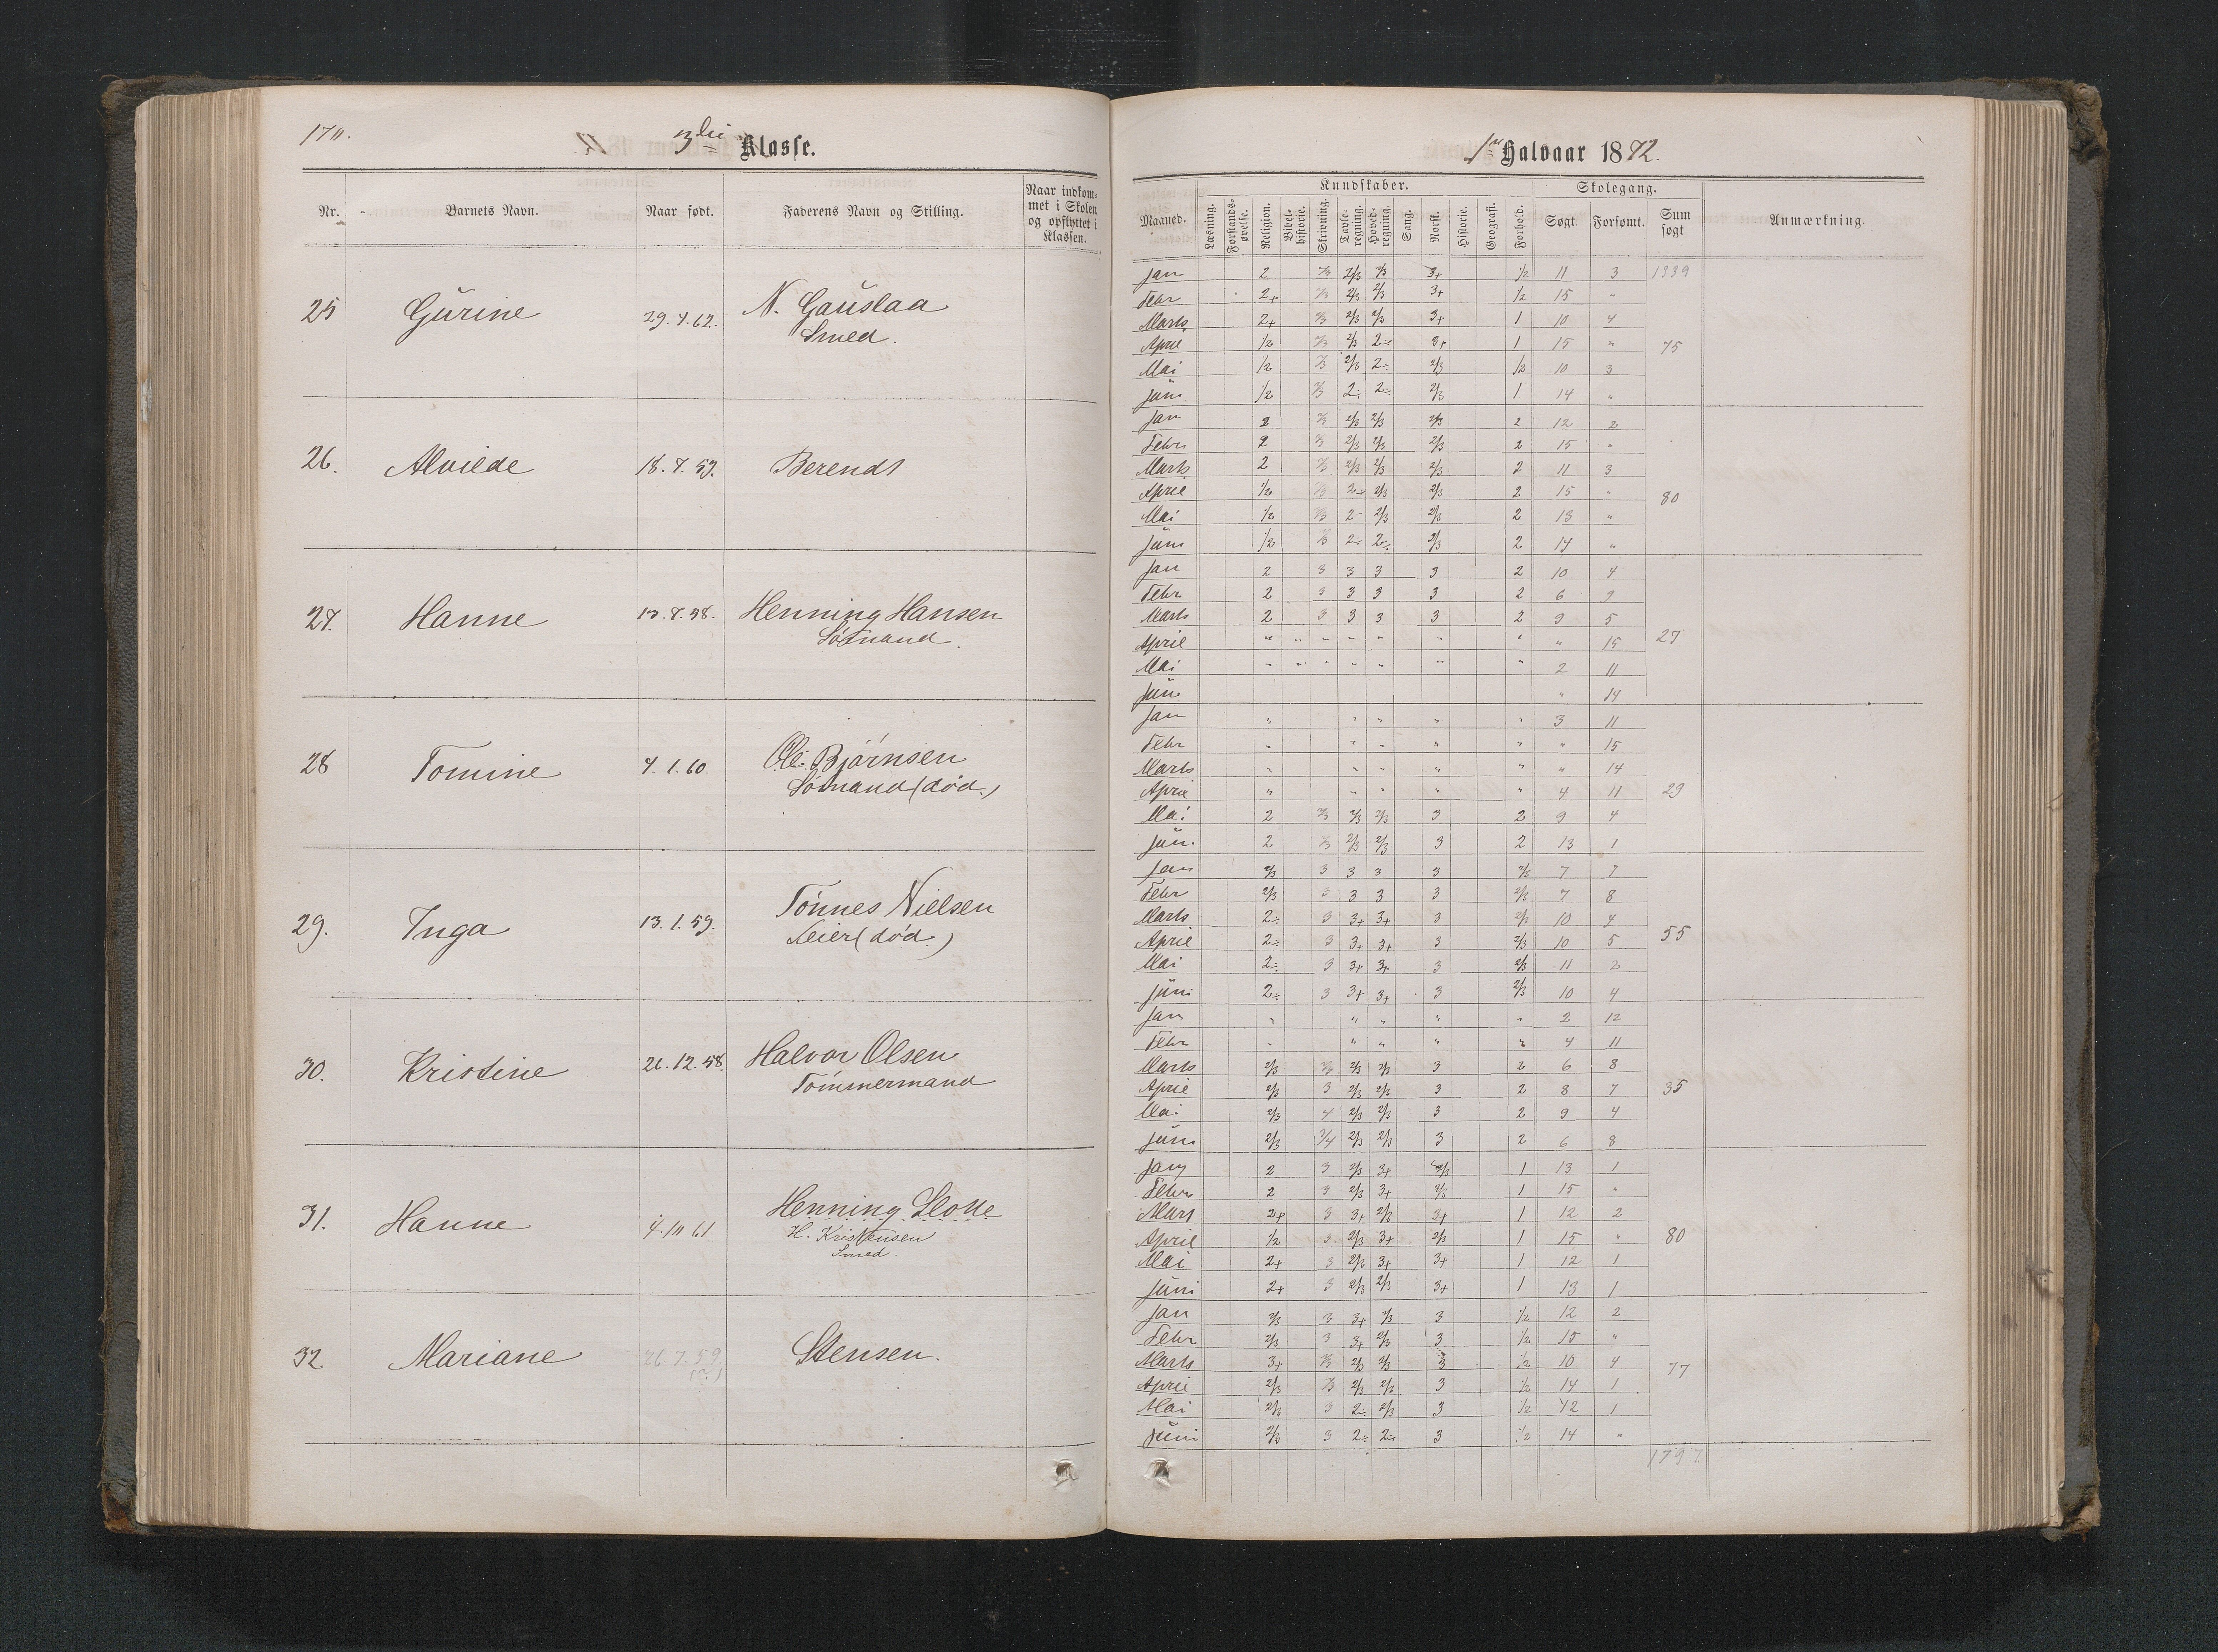 3die Klasse.
Nr. Barnets Navn. Naar født. Faderens Navn og Stilling. Naar indkommet i Skolen og opflyttet i Klassen.
25 Gurine 29.7.62. N. Gauslaa
Smed.
26. Alvilde 18.7.59. Berendt
27. Hanne 13.7.58. Henning Hansen
Sømand.
28 Tomine 7.1.60. Ole Bjørnsen
Sømand (død.)
29. Inga 13.1.59. Tønnes Nielsen
Feier (død.)
30. Kristine 26.12.58. Halvor Olsen
Tømmermand
31. Hanne Henning
H. Kristensen
Smed.
32. Mariane 26.7.59 Stensen.
(?)
1ste Halvaar 1872.
Kundskaber. Skolegang.
Maaned. Læsning. Forstandsøvelse. Religion. Bibelhistorie. Skrivning. Tavleregning. Hovedregning. Sang. Norsk. Historie. Geografi. Forhold. Søgt. Forsømt. Sum søgt Anmærkning.
Jan 2 2/3 2/3 2/3 3+ 1/2 11 3 1339
Febr 2+ 2/3 2/3 2/3 3+ 1/2 15 "
Marts 2+ 2/3 2/3 2/3 3+ 1 10 4
April 1/2 2/3 2/3 2÷ 3+ 1 15 " 75
Mai 1/2 2/3 2/3 2÷ 2/3 1/2 10 3
Juni 1/2 2/3 2÷ 2÷ 2/3 1 14 "
Jan 2 2/3 2/3 2/3 2/3 2 12 2
Febr 2 2/3 2/3 2/3 2/3 2 15 "
Marts 2 2/3 2/3 2/3 2/3 2 11 3
April 1/2 2/3 2÷ 2/3 2/3 2 15 " 80
Mai 1/2 2/3 2÷ 2/3 2/3 2 13 "
Juni 1/2 2/3 2÷ 2÷ 2/3 2 14 "
Jan 2 3 3 3 3 2 10 4
Febr 2 3 3 3 3 2 6 9
Marts 2 3 3 3 3 2 9 5
April " " " " " " " " 15 27
Mai " " " " " " " 2 11
Juni " 14
Jan " " " " " 3 11
Febr " " " " " " 15
Marts " " " " " " 14
April " " " " " 4 11 29
Mai 2 2/3 2/3 2/3 3 2 9 4
Juni 2 2/3 2/3 2/3 3 2 13 1
Jan 2/3 3 3 3 3 2/3 7 7
Febr 2/3 3 3 3 3 2/3 7 8
Marts 2÷ 3 3+ 3+ 3 2/3 10 4
April 2÷ 3 3+ 3+ 3 2/3 10 5 55
Mai 2÷ 3 3+ 3+ 3 2/3 11 2
Juni 2÷ 3 3+ 3+ 3 2/3 10 4
Jan " " " " " 2 12
Febr " " " " " 4 11
Marts 2/3 2/3 2/3 2/3 3 2 6 8
April 2/3 3 2/3 2/3 3 2 8 7 35
Mai 2/3 4 2/3 2/3 3 2 9 4
Juni 2/3 3/4 2/3 2/3 3 2 6 8
Jan 2 3 2/3 3+ 2/3 1 13 1
Febr 2 3 2/3 3+ 2/3 1 15 "
Mars 2+ 3 3+ 2/3 3+ 1 12 2
April 1/2 3 2/3 3+ 2/3 1 15 " 80
Mai 2+ 3 2/3 3+ 3+ 1 12 1
Juni 2+ 3 2/3 2/3 3+ 1 13 1
Jan 2/3 3 3+ 2/3 3 1/2 12 2
Febr 2/3 3 3+ 2/3 3 1/2 15 "
Marts 3+ 2/3 2/3 2/3 3 1/2 10 4
April 2/3 2/3 2/3 2/3 3 1/2 14 1 77
Mai 2/3 3 2÷ 2/3 3 1/2 12 1
Juni 2/3 3 2÷ 2÷ 3 1/2 14 "
1797